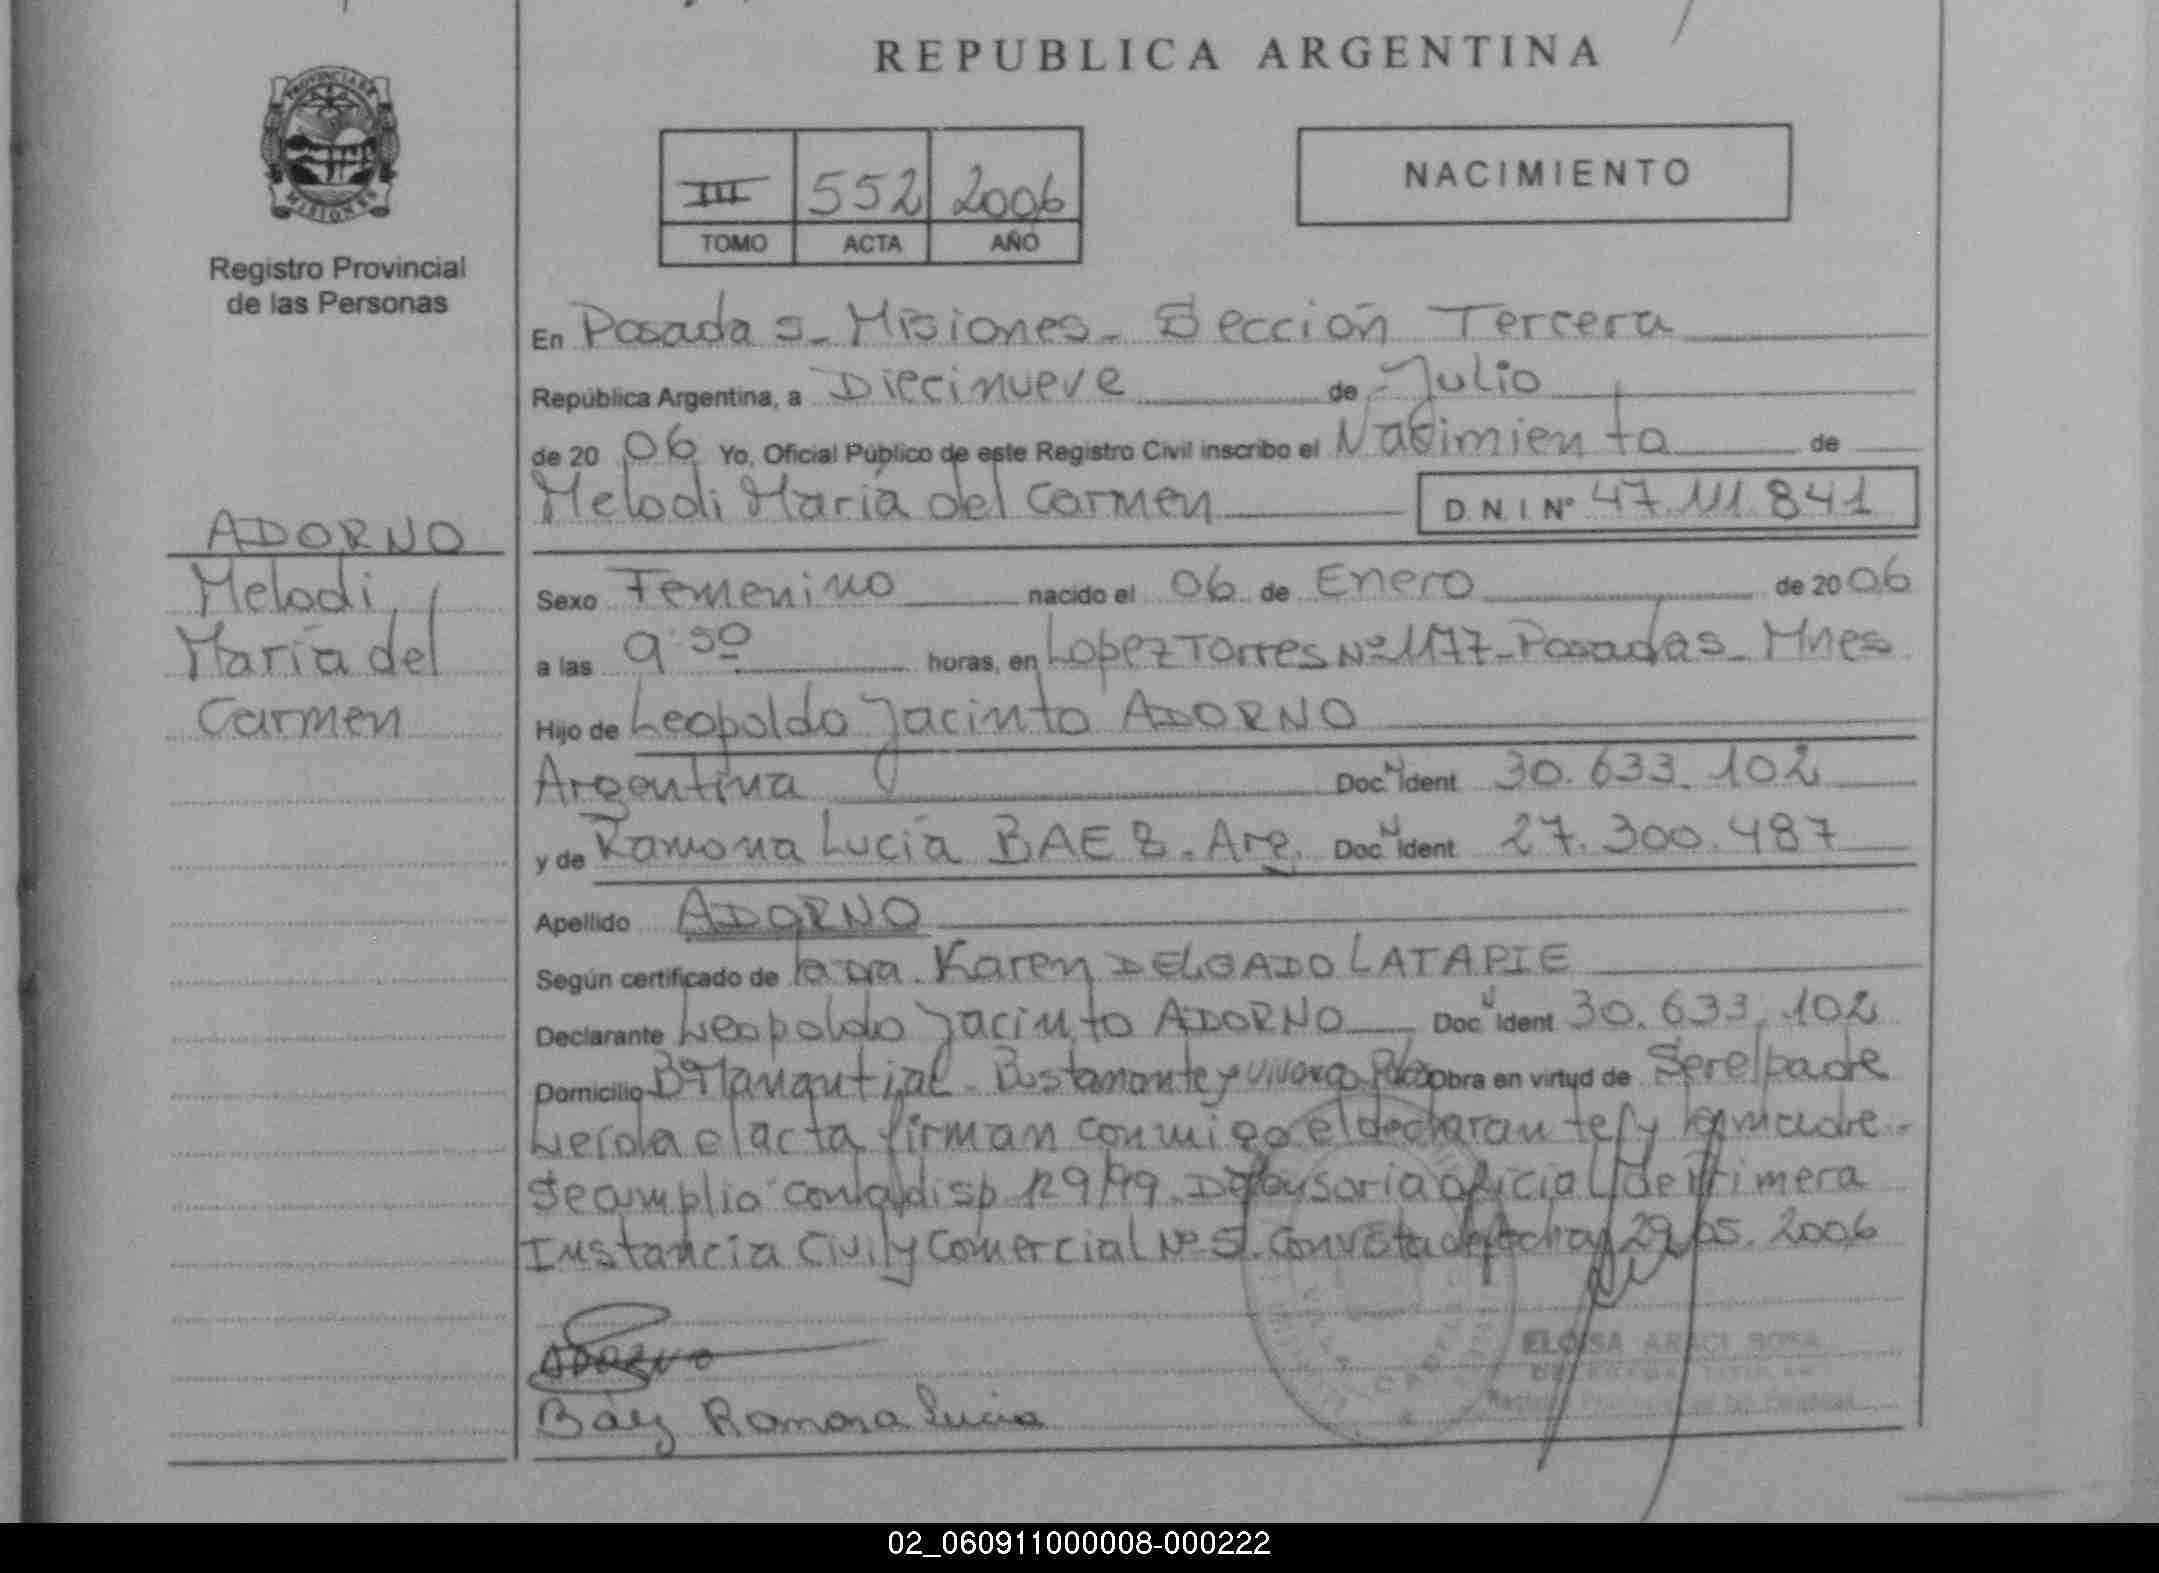 REPUBLICA ARGENTINA
PROVINCIA DE
MISIONES
Registro Provincial
de las Personas
III 552 2006
TOMO ACTA AÑO
NACIMIENTO
En Posadas - Misiones - Sección Tercera
República Argentina, a Diecinueve de Julio
de 20 06 Yo, Oficial Público de este Registro Civil inscribo el Nacimiento de
Melodi María del Carmen D.N.I Nº 47.111.841
ADORNO
Melodi
María del
Carmen
Sexo Femenino nacido el 06 de Enero de 20 06
a las 9:50 horas, en Lopez Torres Nº 1177 - Posadas - Mnes
Hijo de Leopoldo Jacinto ADORNO
Argentina Doc. N Ident 30.633.102
y de Ramona Lucía BAEZ. Arg. Doc. N Ident 27.300.487
Apellido ADORNO
Según certificado de la Dra. Karen DELGADO LATAPIE
Declarante Leopoldo Jacinto ADORNO Doc N Ident 30.633.102
Domicilio Bº Manantial - Bustamante y Obra en virtud de Ser el padre
Leída el acta firman conmigo el declarante y la madre -
Se amplio con la disp 129/99. Defensoria oficial de Primera
Instancia Civil y Comercial Nº 5. Con Vista de fecha 29/05.2006
ADORNO
Báez Ramona Lucia
ELOISA ARACI SOSA
02_060911000008-000222